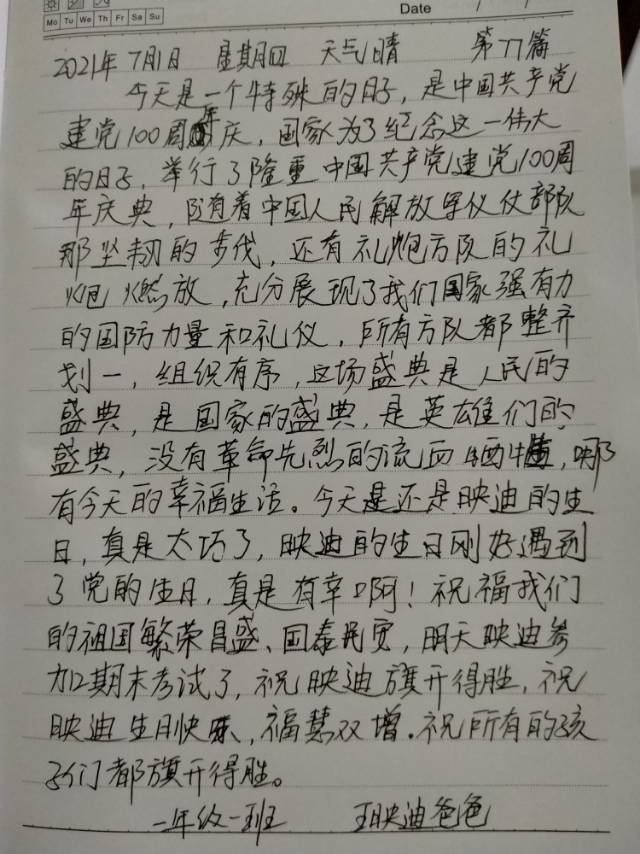 Date / /
Mo Tu We Th Fr Sa Su
2021年7月1日 星期四 天气晴 第77篇
今天是一个特殊的日子，是中国共产党
建党100周年庆，国家为了纪念这一伟大
的日子，举行了隆重中国共产党建党100周
年庆典，随着中国人民解放军仪仗部队
那坚韧的步伐，还有礼炮方队的礼
炮燃放，充分展现了我们国家强有力
的国防力量和礼仪，所有方队都整齐
划一，组织有序，这场盛典是人民的
盛典，是国家的盛典，是英雄们的
盛典，没有革命先烈的流血牺牲，哪
有今天的幸福生活。今天是还是映迪的生
日，真是太巧了，映迪的生日刚好遇到
了党的生日，真是有幸啊！祝福我们
的祖国繁荣昌盛、国泰民安，明天映迪参
加期末考试了，祝映迪旗开得胜，祝
映迪生日快乐，福慧双增。祝所有的孩
子们都旗开得胜。
一年级一班 王映迪爸爸